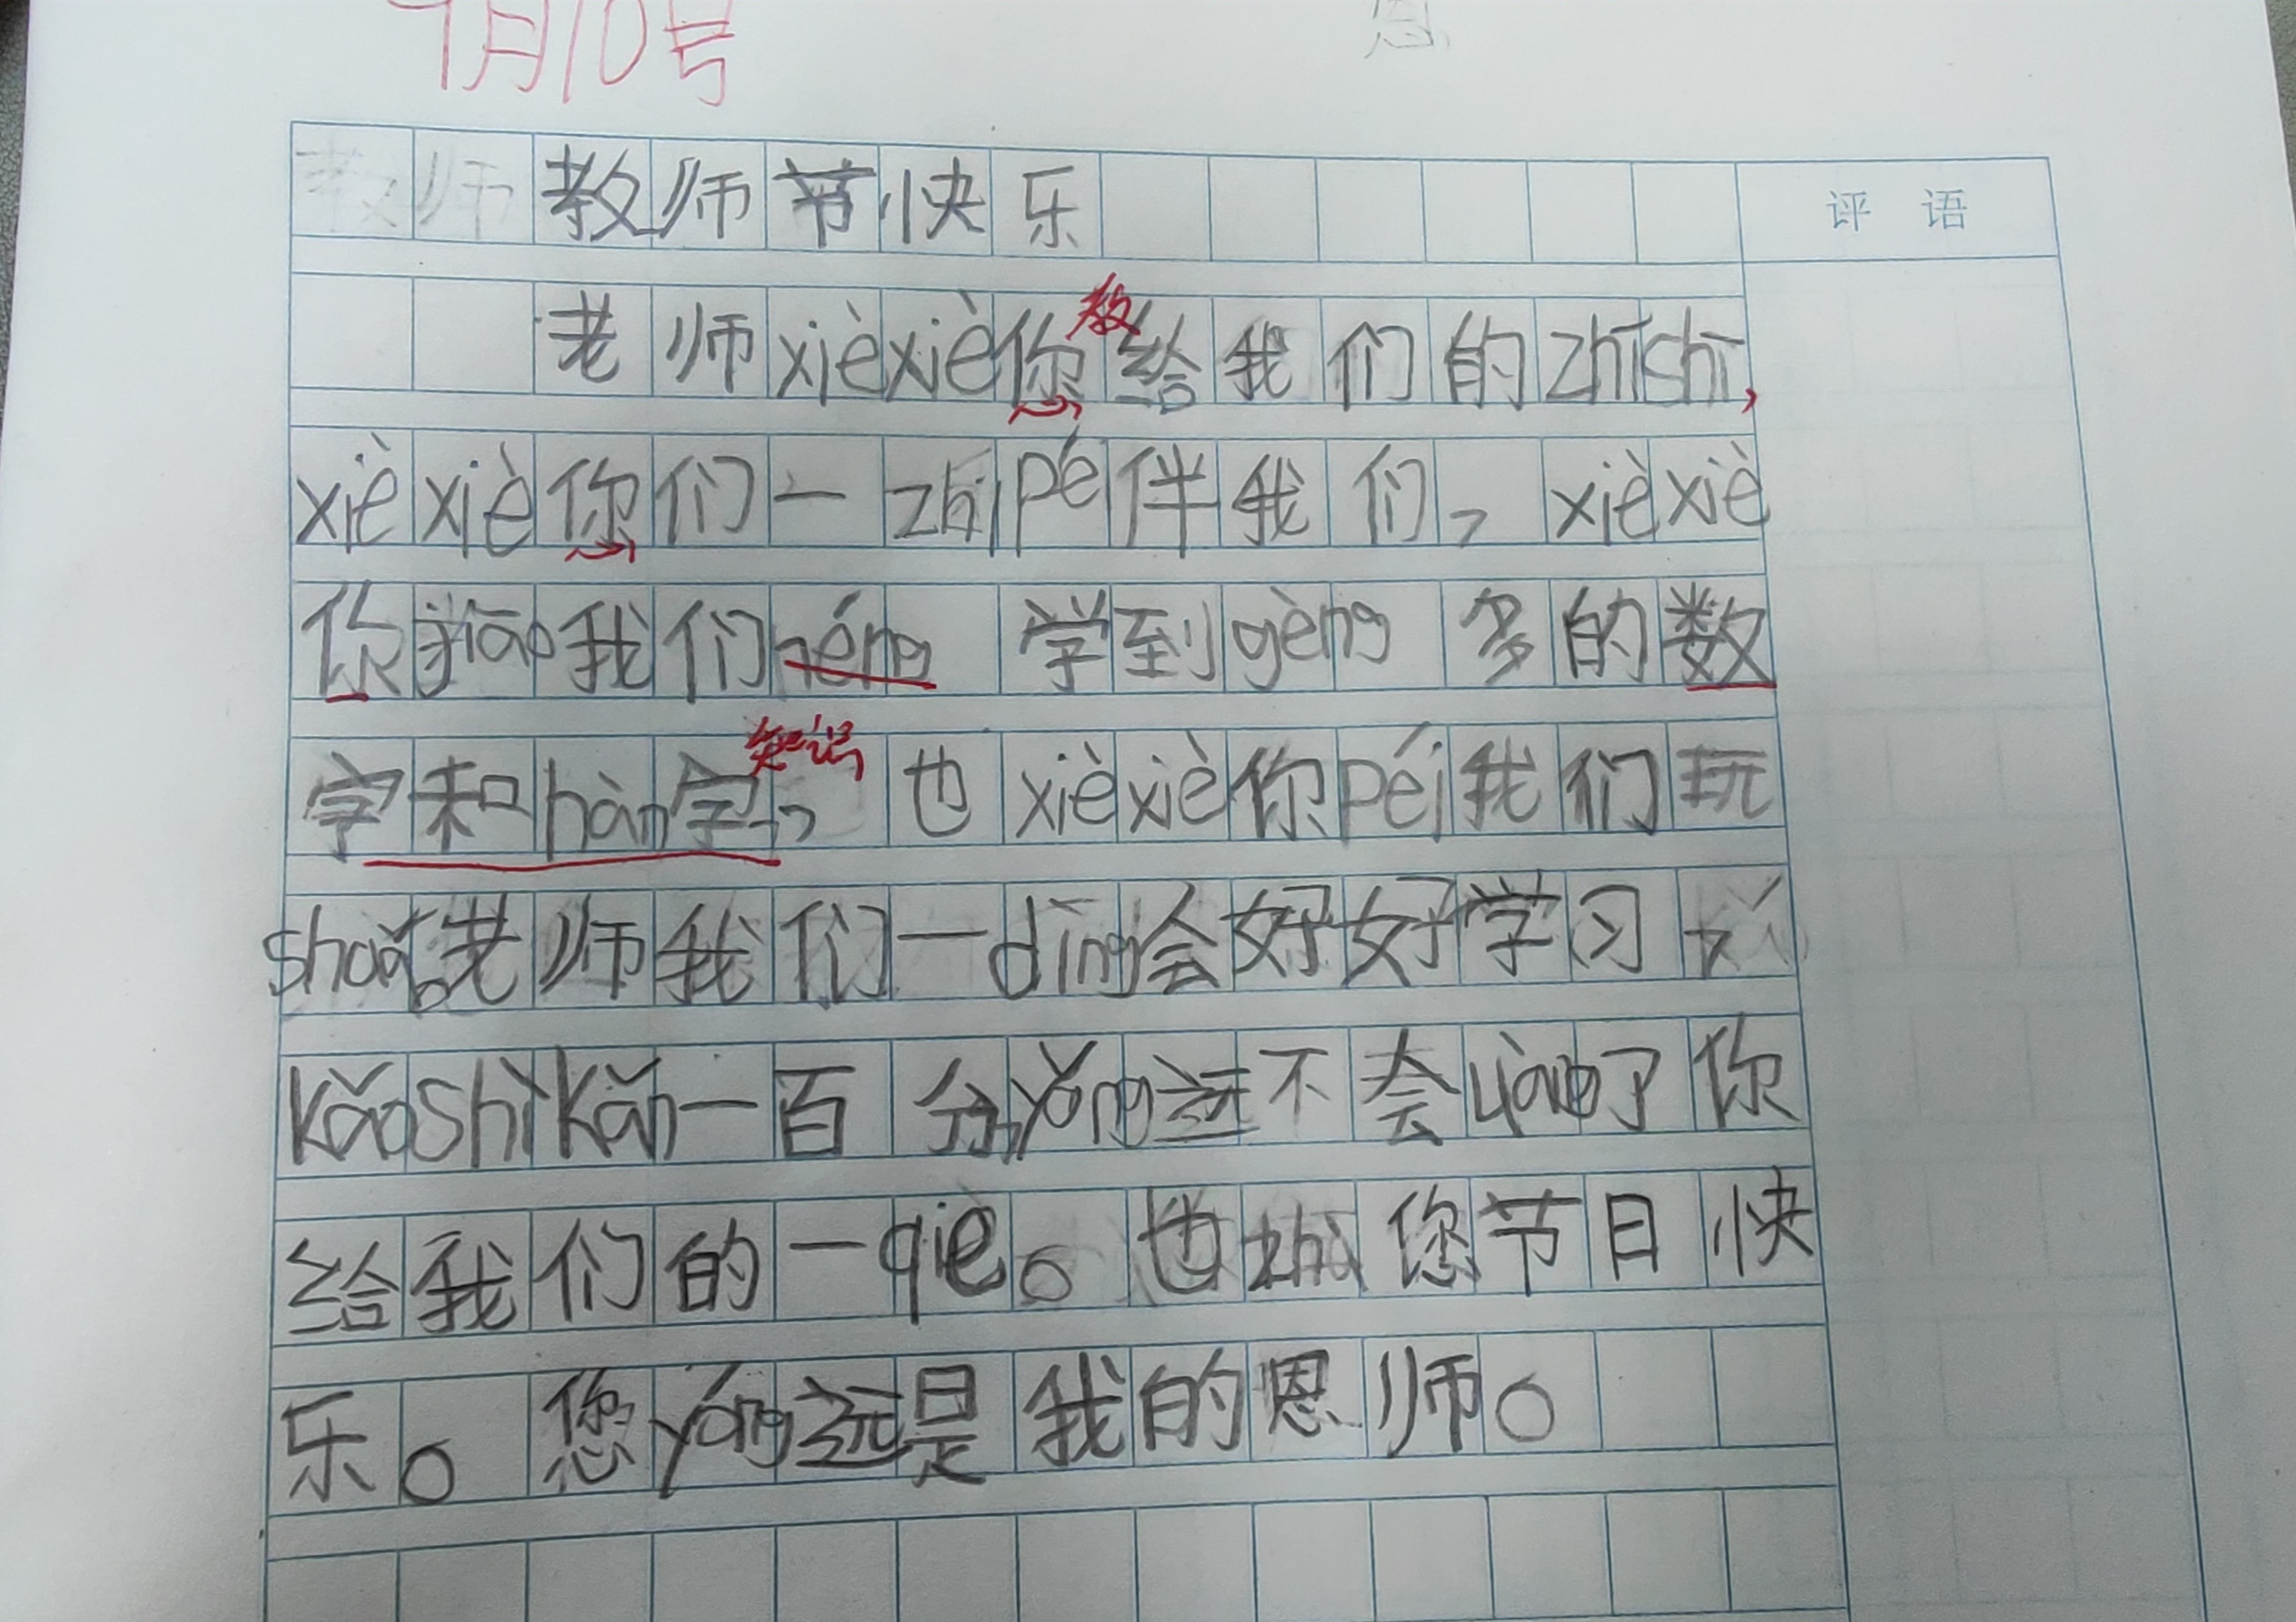 9月10号
恩
教师教师节快乐
评语
老师xièxiè你给我们的zhīshì,
教
xièxiè你们一zhípé伴我们,xièxiè
你jiāo我们néng学到gèng多的数
字和hàn字,也xièxiè你péi我们玩
知识
shuǎ。老师我们一dìng会好好学习
kǎoshìkǎn一百分,yǒng远不会wàng了你
给我们的一qiè。也zhù您节日快
乐。您yǒng远是我的恩师。